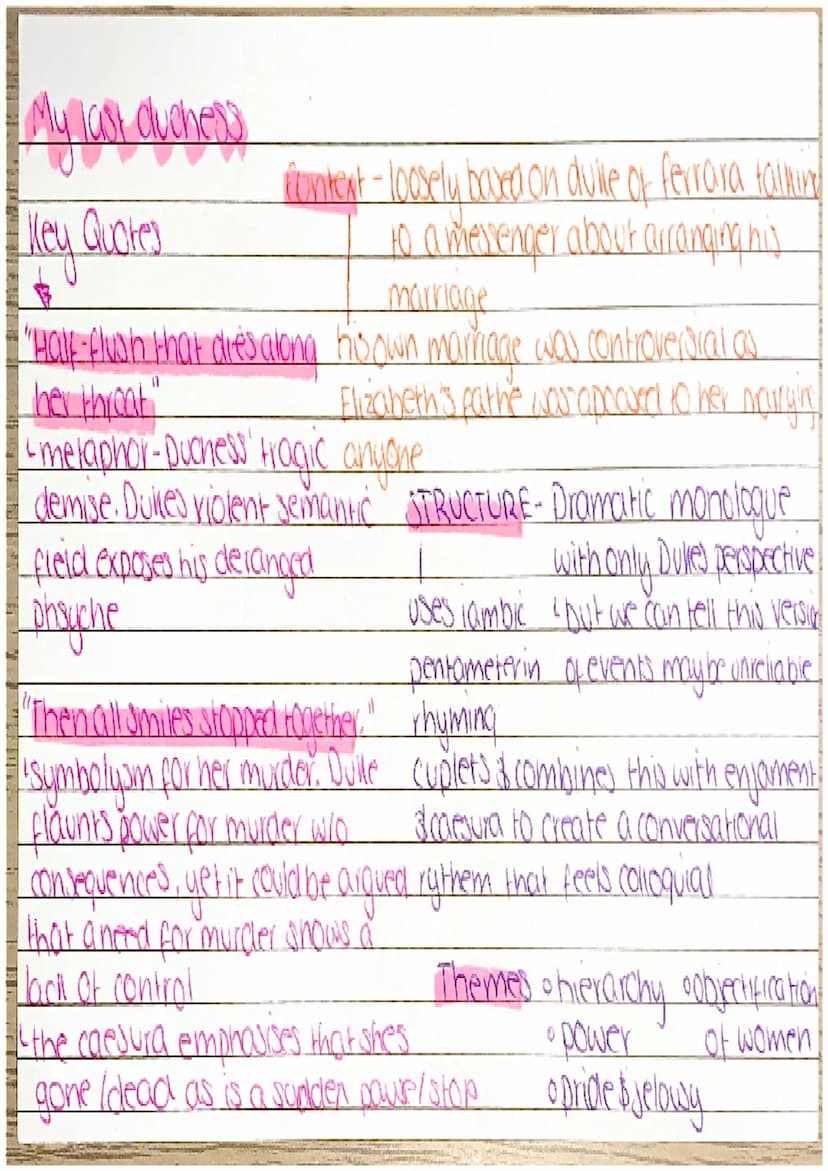 My last duchess
Context - loosely based on duke of ferrara talkin
to a messenger about arranging his
marriage
his own marriage was controversial as
Elizabeth's fathe was apposed to her marrying
anyone
Key Quotes
"Half-flush that dies along
her throat"
metaphor - Duchess' tragic
demise. Dukes violent semantic
field exposes his deranged
phsyche
"Then all smiles stopped together."
symbolysm for her murder. Duke
flaunts power for murder w/o
consequences, yet it could be argued
that a need for murder shows a
lack of control
the caesura emphasises that shes
gone/dead as is a sudden pause/stop
STRUCTURE - Dramatic monologue
with only Dukes perspective
but we can tell this versio
of events may be unreliable
uses iambic
pentameter in
rhyming
cuplets & combines this with enjament
& caesura to create a conversational
rythem that feels coloquial
Themes
hierarchy
power
pride & jelowsy
objectification
of women